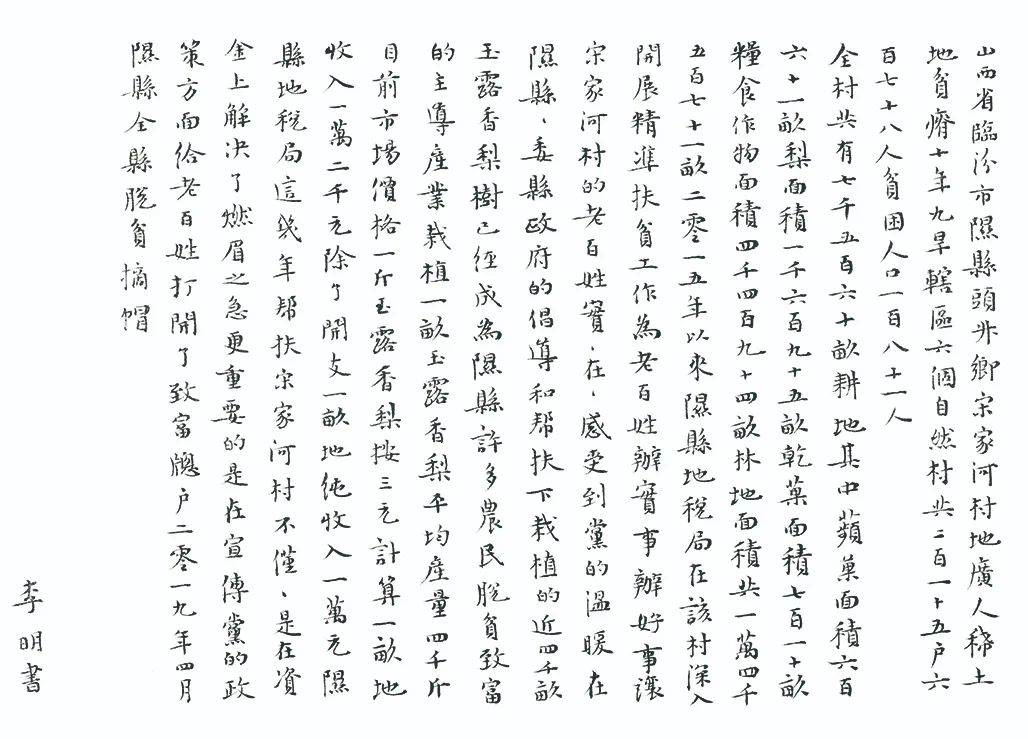 山西省臨汾市隰縣頭井鄉宋家河村地廣人稀土
地貧瘠十年九旱轄區六個自然村共二百一十五户六
百七十八人貧困人口一百八十一人
全村共有七千五百六十畝耕地其中蘋菓面積六百
六十一畝梨面積一千六百九十五畝乾菓面積七百一十畝
糧食作物面積四千四百九十四畝林地面積共一萬四千
五百七十一畝二零一五年以來隰縣地稅局在該村深入
開展精準扶貧工作為老百姓辦實事辦好事讓
宋家河村的老百姓實、在、感受到黨的溫暖在
隰縣、委縣政府的倡導和帮扶下栽植的近四千畝
玉露香梨樹已經成為隰縣許多農民脫貧致富
的主導産業栽植一畝玉露香梨平均産量四千斤
目前市場價格一斤玉露香梨按三元計算一畝地
收入一萬二千元除了開支一畝地純收入一萬元隰
縣地稅局這幾年帮扶宋家河村不僅、是在資
金上解决了燃眉之急更重要的是在宣傳黨的政
策方面給老百姓打開了致富牕户二零一九年四月
隰縣全縣脫貧摘帽
李明書